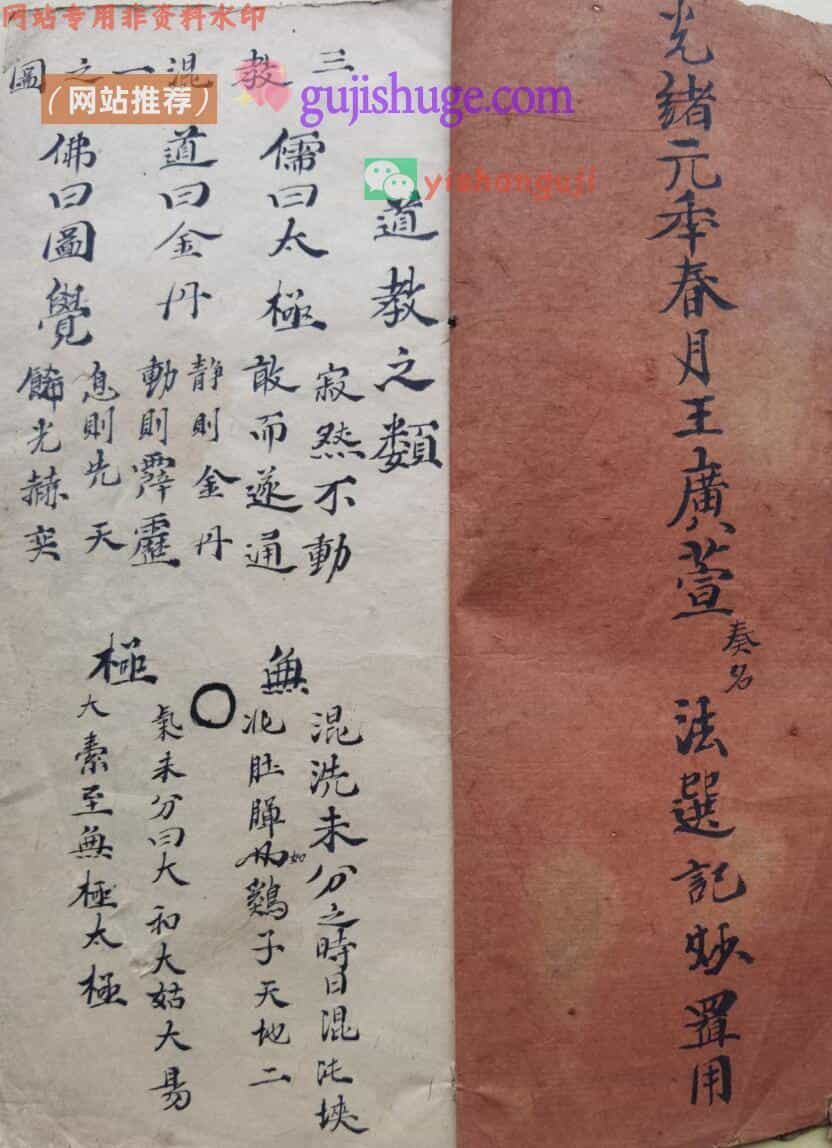 网站专用非资料水印
（网站推荐）
gujishuge.com
yishanguji
光緒元年春月王廣萱奏名 法選記抄置用
道教之類
三教混一之圖
儒曰太極 寂然不動
敢而遂通
道曰金丹 静則金丹
動則霹靂
佛曰圖覺 息則先天
飾光赫奕
無○極
混洗未分之時日混沌
兆胚腪如鷄子天地二
氣未分曰大和大姑大易
大素至無極太極